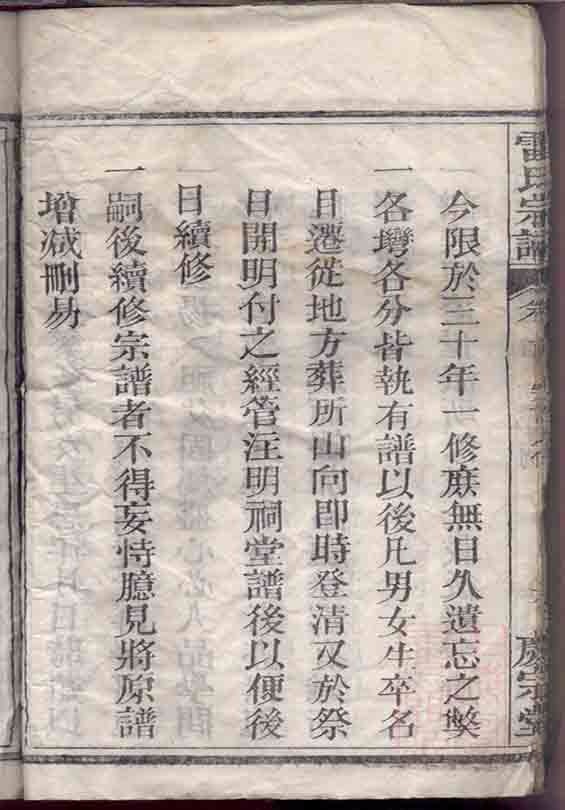 雷氏宗譜
慶宗堂
今限於三十年一修庶無日久遺忘之獘
一各塆各分皆執有譜以後凡男女生卒名
目遷徙地方葬所山向卽時登清又於祭
日開明付之經管注明祠堂譜後以便後
日續修
一嗣後續修宗譜者不得妄恃臆見將原譜
增减刪易